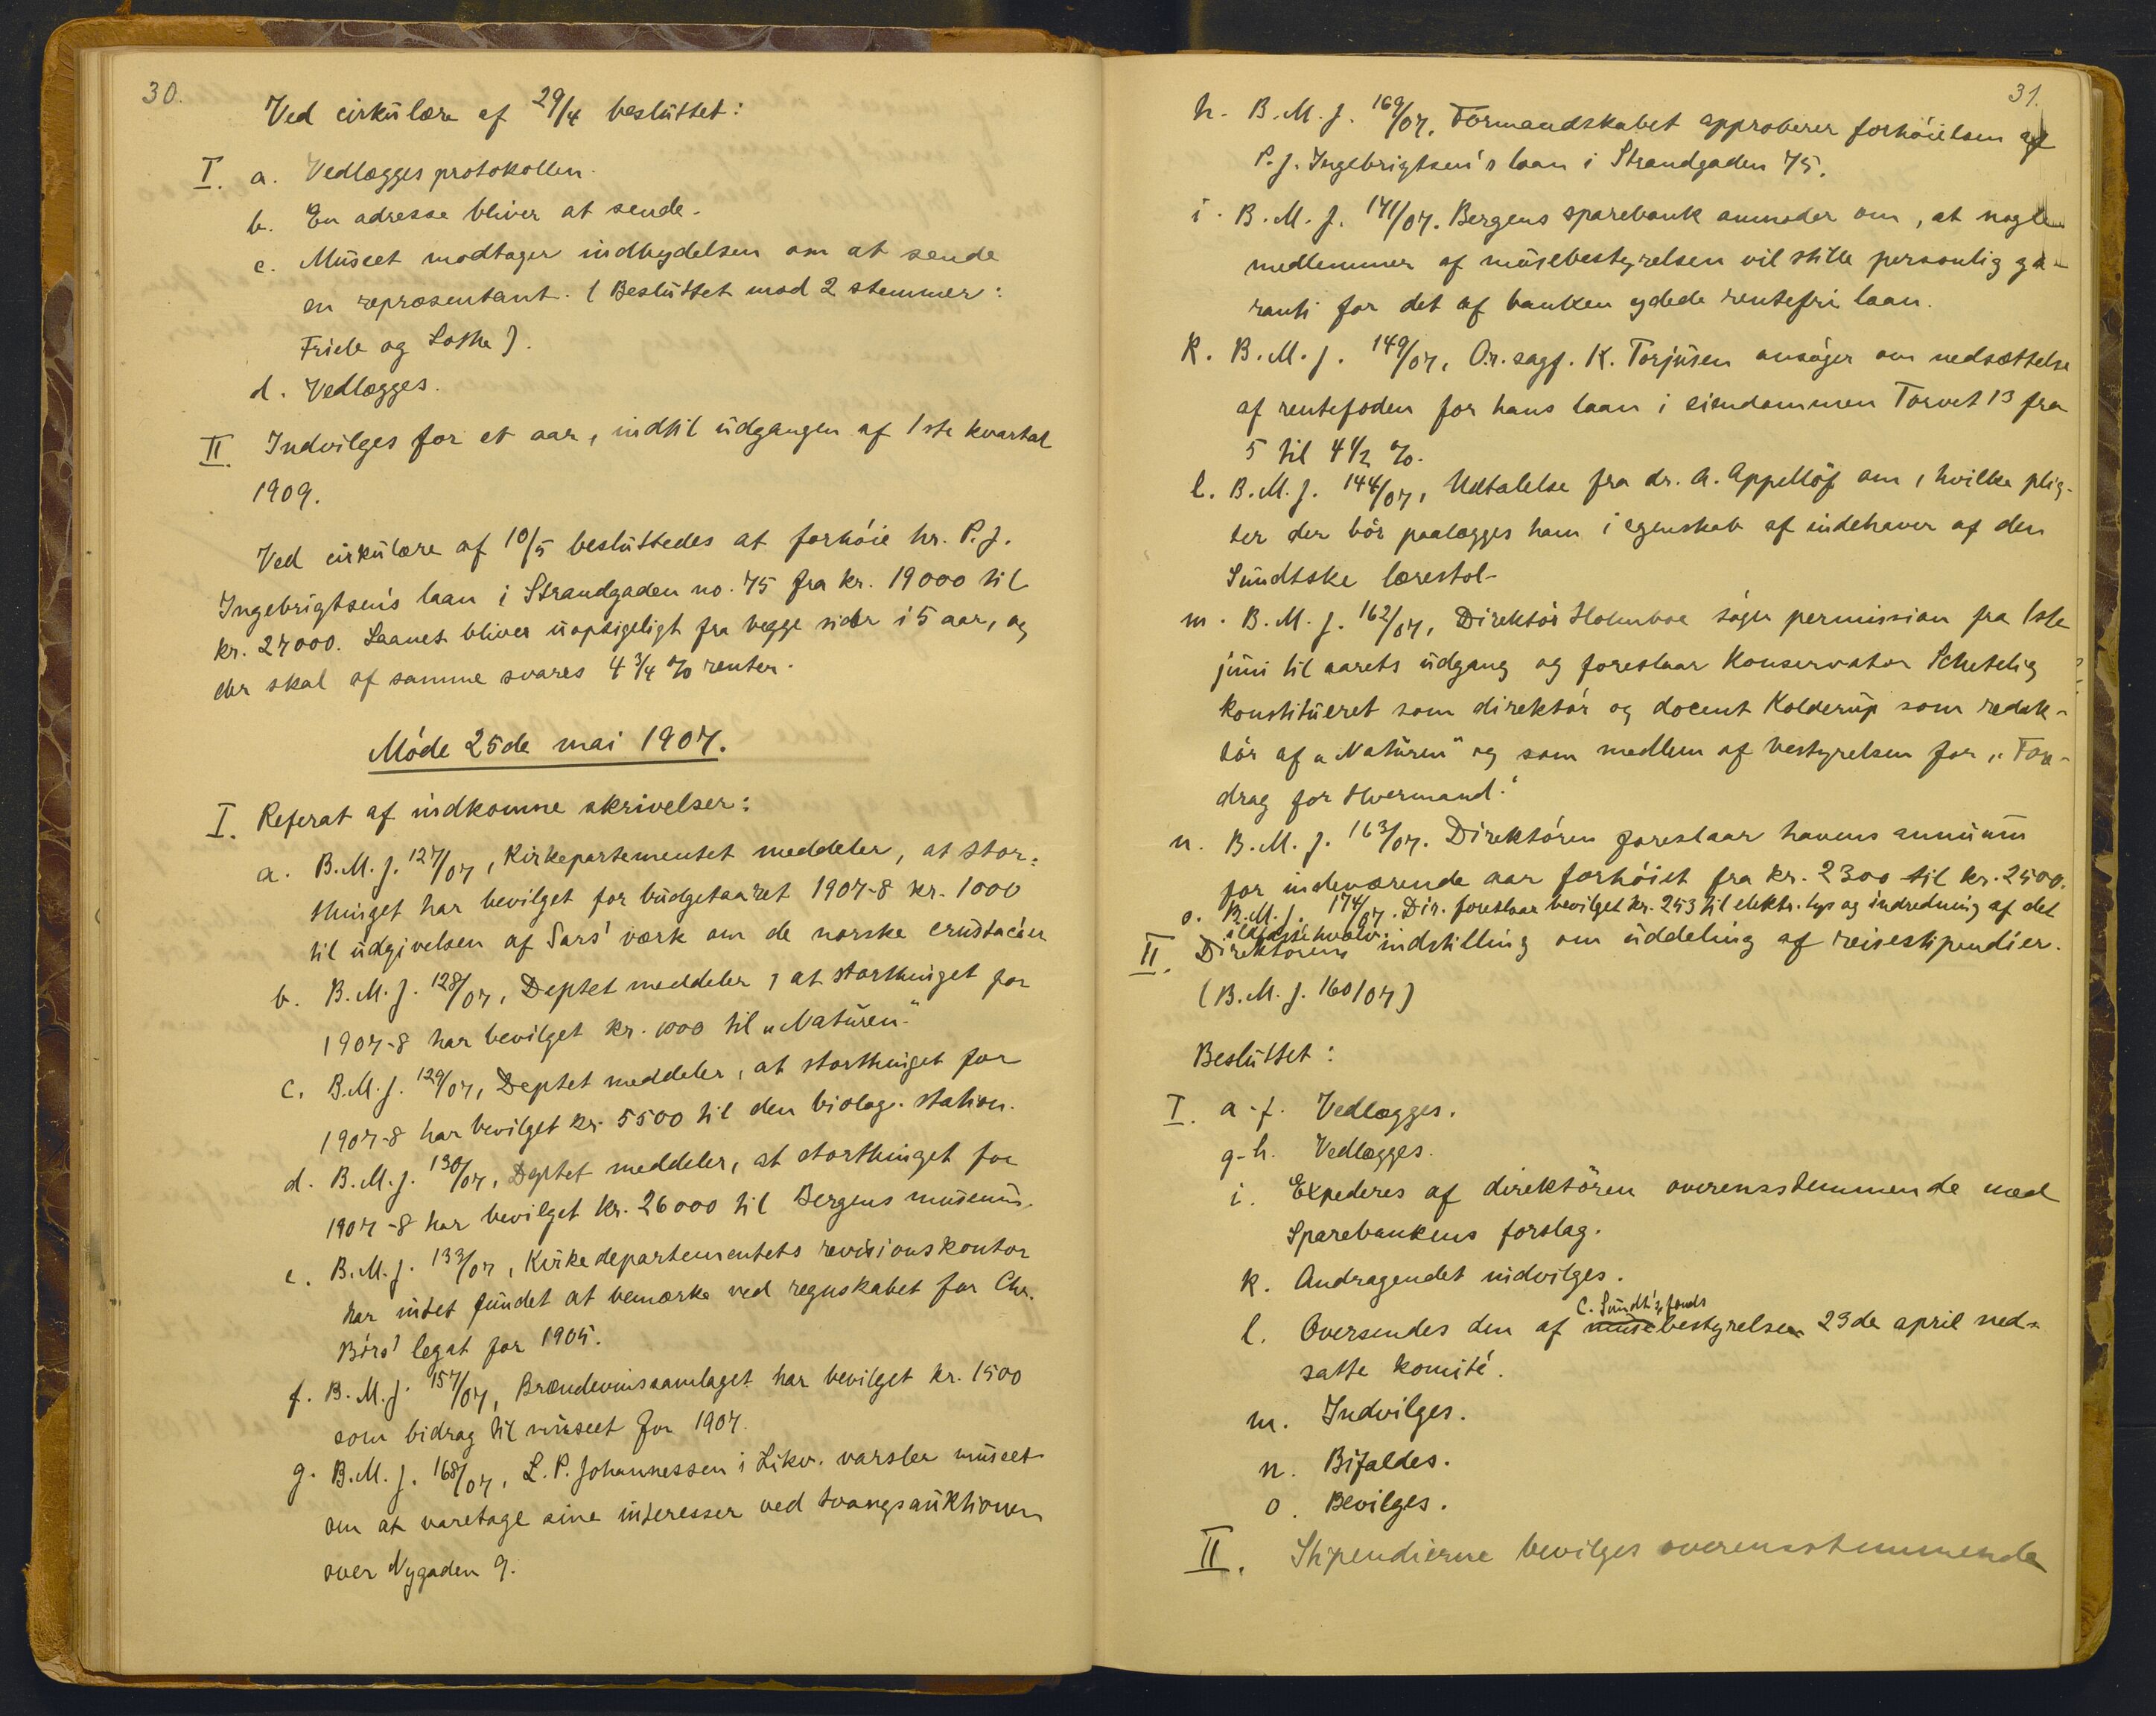 30.
Ved cirkulære af 29/4 besluttet:
I. a. Vedlægges protokollen.
b. En adresse bliver at sende.
c. Museet modtager indbydelsen om at sende
en repræsentant. (Besluttet mod 2 stemmer:
Friele og Lothe).
d. Vedlægges.
II. Indvilges for et aar, indtil udgangen af 1ste kvartal
1909.
Ved cirkulære af 10/5 besluttedes at forhöie hr. P. J.
Ingebrigtsen's laan i Strandgaden no. 75 fra kr. 19000 til
kr. 27000. Laanet bliver uopsigeligt fra begge sider i 5 aar, og
der skal af samme svares 4 3/4 % renter.
Möde 25de mai 1907.
I. Referat af indkomne skrivelser:
a. B. M. J. 127/07, Kirkepartementet meddeler, at stor-
thinget har bevilget for budgetaaret 1907-8 kr. 1000
til udgivelsen af Sars' værk om de norske crustacéer
b. B. M. J. 128/07, Deptet meddeler, at storthinget for
1907-8 har bevilget kr. 1000 til „Naturen."
c. B. M. J. 129/07, Deptet meddeler, at storthinget for
1907-8 har bevilget kr. 5500 til den biolog. station.
d. B. M. J. 130/07, Deptet meddeler, at storthinget for
1907-8 har bevilget kr. 26000 til Bergens museum.
e. B. M. J. 133/07, Kirkedepartementets revisionskontor
har intet fundet at bemærke ved regnskabet for Chr.
Börs' legat for 1905.
f. B. M. J. 157/07, Brændevinssamlaget har bevilget kr. 1500
som bidrag til museet for 1907.
g. B. M. J. 168/07, L. P. Johannessen i Likv. varsler museet
om at varetage sine interesser ved tvangsauktionen
over Nygaden 9.
31.
h. B. M. J. 169/07. Formandskabet approberer forhöielsen af
P. J. Ingebrigtsen's laan i Strandgaden 75.
i. B. M. J. 171/07. Bergens sparebank anmoder om, at nogle
medlemmer af musebestyrelsen vil stille personlig ga-
ranti for det af banken ydede rentefri laan.
k. B. M. J. 149/07, O.r. sagf. K. Torjusen ansöger om nedsættelse
af rentefoden for hans laan i eiendommen Torvet 13 fra
5 til 4 1/2 %.
l. B. M. J. 144/07, Udtalelse fra dr. A. Appellöf om, hvilke plig-
ter der bör paalægges ham i egenskab af indehaver af den
Sundtske lærestol-
m. B. M. J. 162/07, Direktör Holmboe söger permission fra 1ste
juni til aarets udgang og foreslaar Konservator Schetelig
konstitueret som direktör og docent Kolderup som redak-
tör af „Naturen" og som medlem af bestyrelsen for „For-
drag for Hvermand."
n. B. M. J. 163/07. Direktören foreslaar havens annuum
for indeværende aar forhöiet fra kr. 2300 til kr. 2500.
o. B. M. J. 174/07. Dir. foreslaar bevilget kr. 253 til elektr. lys og indredning af det
hvælv.
II. Direktörens indstilling om uddeling af reisestipendier.
(B. M. J. 160/07)
Besluttet:
I. a-f. Vedlægges.
g-h. Vedlægges.
i. Expederes af direktören overensstemmende med
Sparebankens forslag.
k. Andragendet indvilges.
C. Sundt's fonds
l. Oversendes den af musebestyrelsen 23de april ned-
satte komité.
m. Indvilges.
n. Bifaldes.
o. Bevilges.
II. Stipendierne bevilges overensstemmende